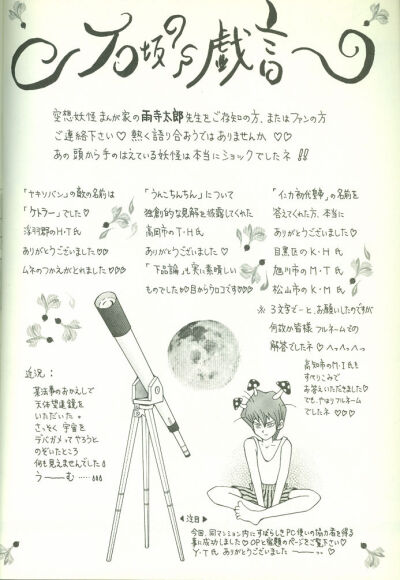 空想妖怪まんが家の雨寺太郎先生をご存知の方、またはファンの方
ご連絡下さい♡ 熱く語り合おうではありませんか ♡♡
あの頭から手のはえている妖怪は本当にショックでしたネ!!
「ヤキソバン」の敵の名前は
「ケトラー」でした♡
浮羽郡のH・T氏
ありがとうございました♡♡
ムネのつかえがとれました♡♡♡
「うんこちんちん」について
独創的な見解を披露してくれた
高岡市のT・H氏
ありがとうございました♡
「下品論」も実に素晴しい
ものでした♡♡目からウロコです♡♡
「イカ初代皇帝」の名前を
答えてくれた方、本当に
ありがとうございました♡
目黒区のK・H氏
旭川市のM・T氏
松山市のK・M氏
※ 3文字でーと、お願いしたのですが
何故か皆様 フルネームでの
解答でした♡ へっへっへっ
高知市のM・I氏も
すべりこみで
お答えいただきました♡
でも、やはりフルネーム
でしたネ ♡♡♡
近況:
某法事のおかえしで
天体望遠鏡を
いただいた。
さっそく 宇宙を
デバガメってやろうと
のぞいたところ
何も見えませんでした!
うーーむ・・・・・
<注目>
今回、同マンション内にすばらしきPC使いの協力者を得る
事に成功しました♡ OPと宿題のページをご覧下さい♡
Y・T氏 ありがとうございましたーーっっ ♡